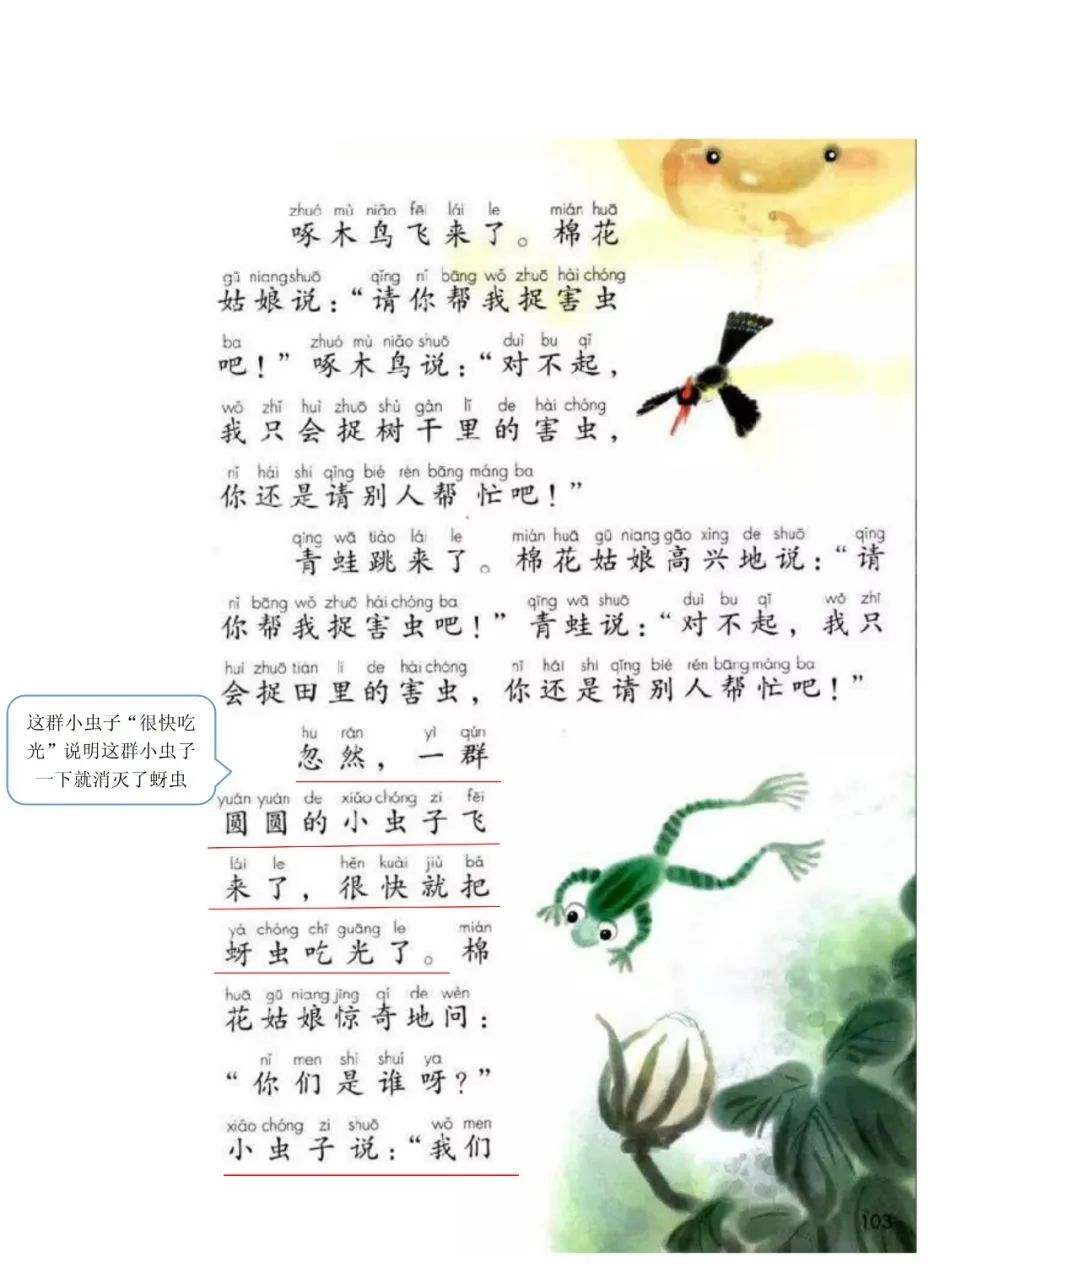 zhuó mù niǎo fēi lái le mián huā
啄木鸟飞来了。棉花
gū niang shuō qǐng nǐ bāng wǒ zhuō hài chóng
姑娘说：“请你帮我捉害虫
ba zhuó mù niǎo shuō duì bu qǐ
吧！”啄木鸟说：“对不起，
wǒ zhǐ huì zhuō shù gàn lǐ de hài chóng
我只会捉树干里的害虫，
nǐ hái shi qǐng bié rén bāng máng ba
你还是请别人帮忙吧！”
qīng wā tiào lái le mián huā gū niang gāo xìng de shuō qǐng
青蛙跳来了。棉花姑娘高兴地说：“请
nǐ bāng wǒ zhuō hài chóng ba qīng wā shuō duì bu qǐ wǒ zhǐ
你帮我捉害虫吧！”青蛙说：“对不起，我只
huì zhuō tián li de hài chóng nǐ hái shi qǐng bié rén bāng máng ba
会捉田里的害虫，你还是请别人帮忙吧！”
这群小虫子“很快吃
光”说明这群小虫子
一下就消灭了蚜虫
hū rán yì qún
忽然，一群
yuán yuán de xiǎo chóng zi fēi
圆圆的小虫子飞
lái le hěn kuài jiù bǎ
来了，很快就把
yá chóng chī guāng le mián
蚜虫吃光了。棉
huā gū niang jīng qí de wèn
花姑娘惊奇地问：
nǐ men shì shuí ya
“你们是谁呀？”
xiǎo chóng zi shuō wǒ men
小虫子说：“我们
103